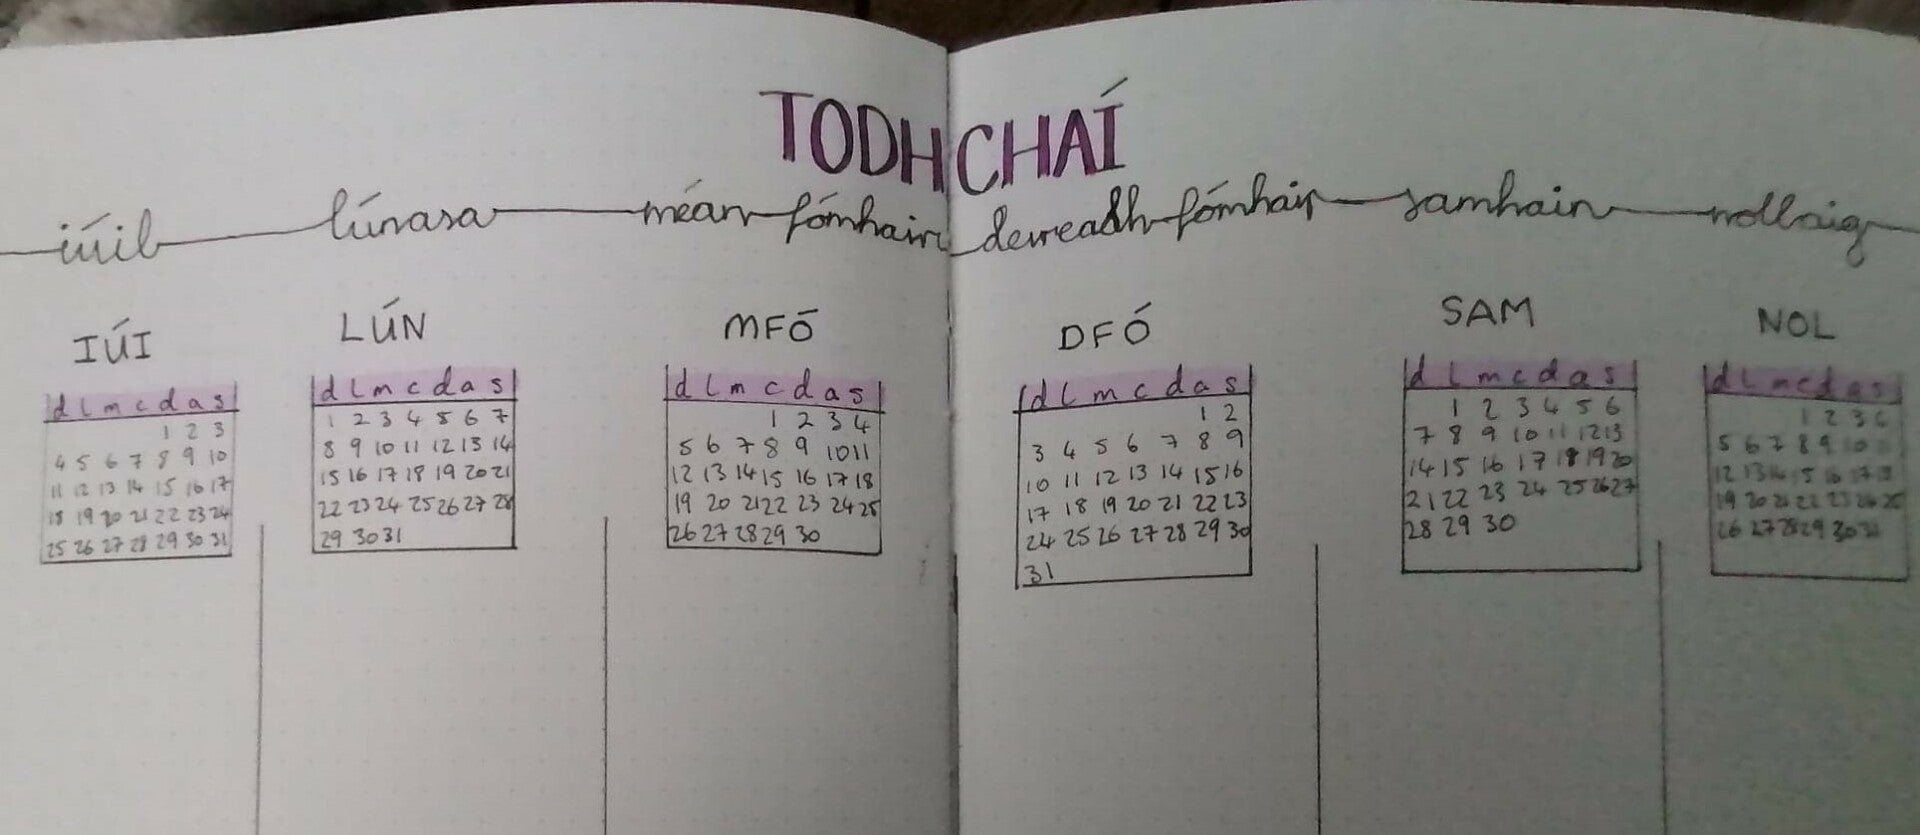 TODHCHAÍ
iúil lúnasa meán fómhair deireadh fómhair samhain nollaig
IÚI
d l m c d a s
1 2 3
4 5 6 7 8 9 10
11 12 13 14 15 16 17
18 19 20 21 22 23 24
25 26 27 28 29 30 31
LÚN
d l m c d a s
1 2 3 4 5 6 7
8 9 10 11 12 13 14
15 16 17 18 19 20 21
22 23 24 25 26 27 28
29 30 31
MFÓ
d l m c d a s
1 2 3 4
5 6 7 8 9 10 11
12 13 14 15 16 17 18
19 20 21 22 23 24 25
26 27 28 29 30
DFÓ
d l m c d a s
1 2
3 4 5 6 7 8 9
10 11 12 13 14 15 16
17 18 19 20 21 22 23
24 25 26 27 28 29 30
31
SAM
d l m c d a s
1 2 3 4 5 6
7 8 9 10 11 12 13
14 15 16 17 18 19 20
21 22 23 24 25 26 27
28 29 30
NOL
d l m c d a s
1 2 3 4
5 6 7 8 9 10
12 13 14 15 16 17 18
19 20 21 22 23 24 25
26 27 28 29 30 31